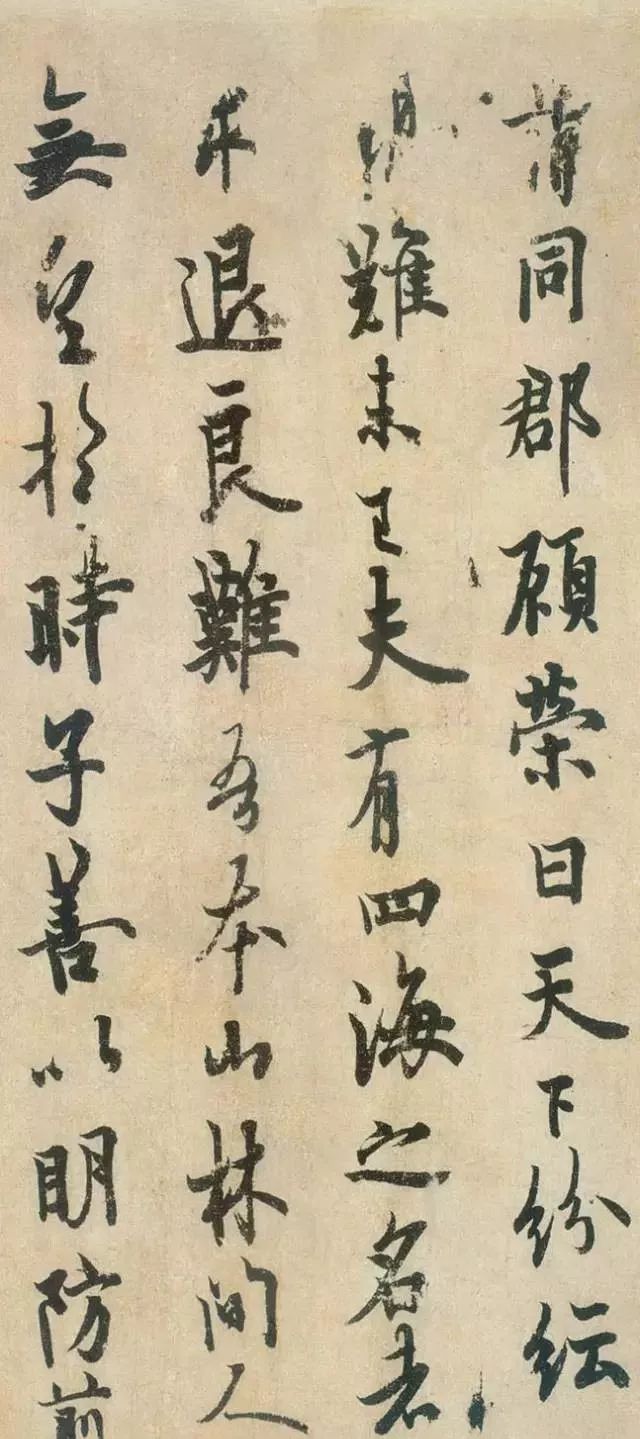 同郡顧榮曰天下紛紜
難未已夫有四海之名者
求退良難吾本山林間人
無望於時子善以明防前